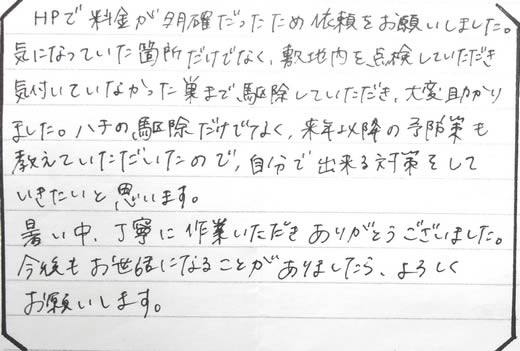 HPで料金が明確だったため依頼をお願いしました。
気になっていた箇所だけでなく、敷地内を点検していただき
気付いていなかった巣まで駆除していただき、大変助かり
ました。ハチの駆除だけでなく、来年以降の予防策も
教えていただいたので、自分で出来る対策をして
いきたいと思います。
暑い中、丁寧に作業いただきありがとうございました。
今後もお世話になることがありましたら、よろしく
お願いします。